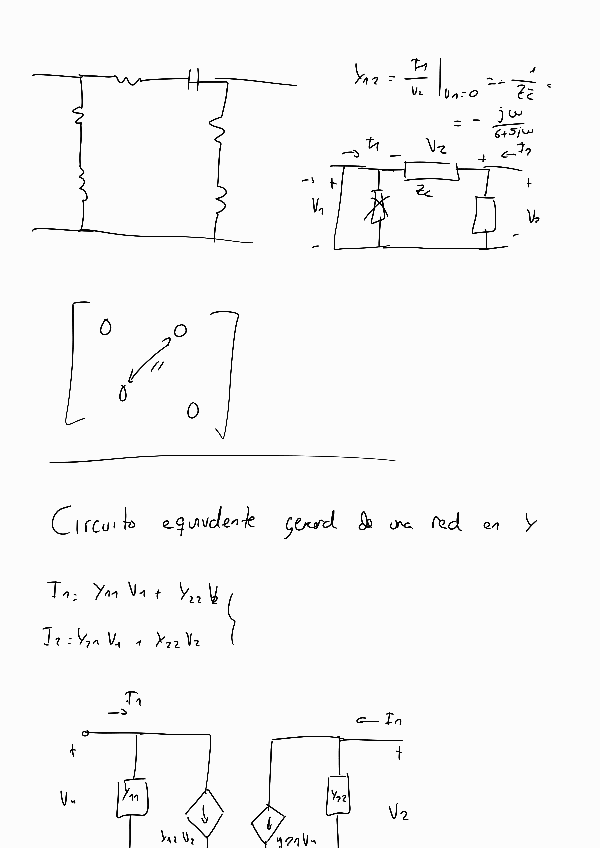 Y12 = I1/V2 | V1=0 = - 1/Zc =
= - jω/6+5jω
→ I1 - V2 + ← I2
Zc
+ +
V1 V2
- -
0 0
"
0 0
Circuito equivalente general de una red en Y
I1 = Y11 V1 + Y22 V2
I2 = Y21 V1 + Y22 V2
→ I1 ← I1
+ +
V1 Y11 Y22 V2
Y12 V2 Y21 V1